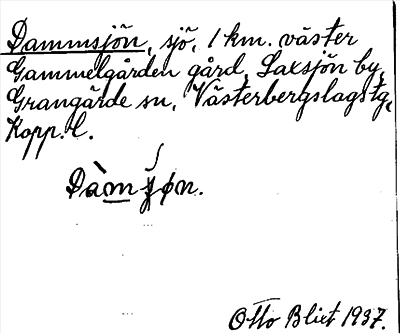 Dammsjön, sjö, 1 km. väster
Gammelgården gård, Saxsjön by,
Grangärde sn, Västerbergslags tg,
Kopp. l.
Otto Blixt 1937.